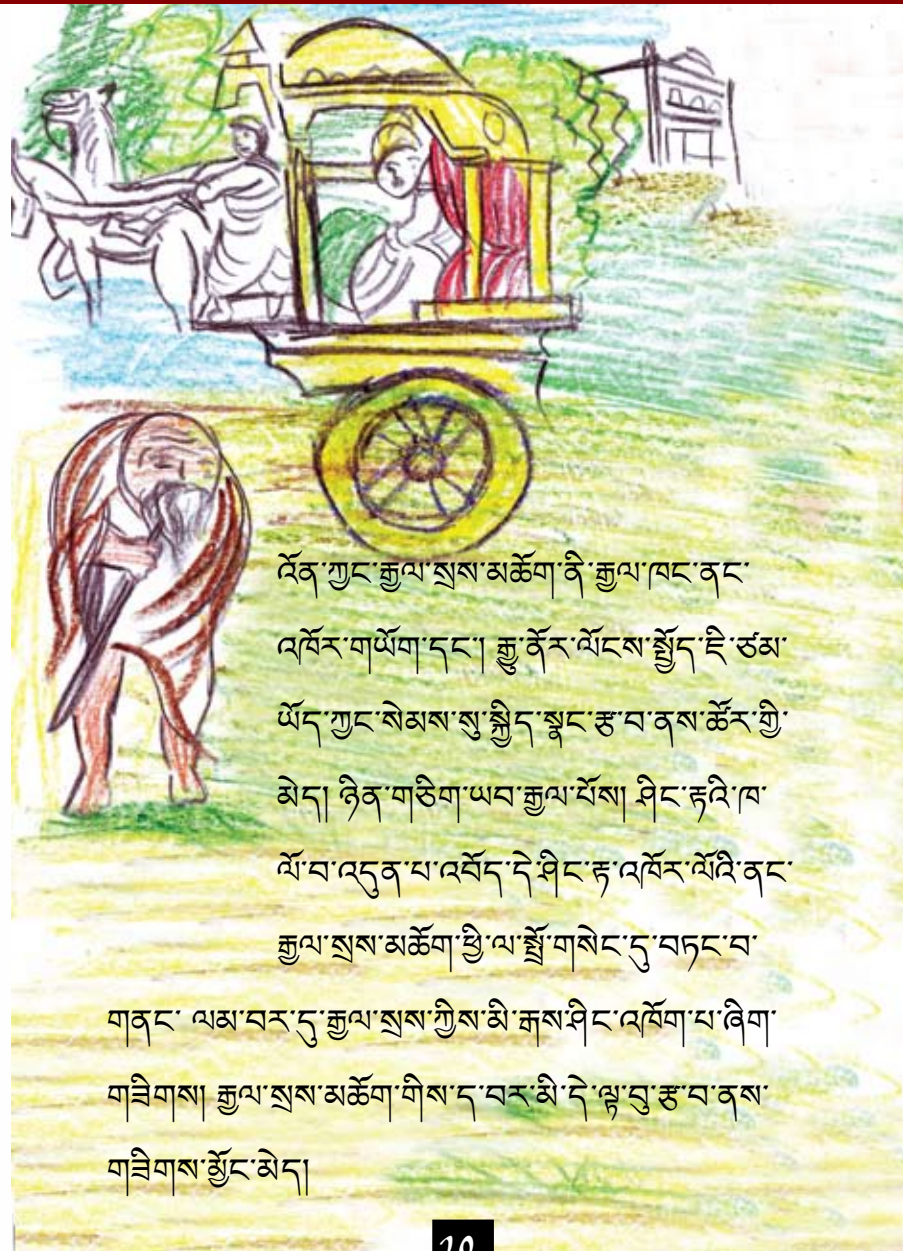 འོན་ཀྱང་རྒྱལ་སྲས་མཆོག་ནི་རྒྱལ་ཁང་ནང་
འཁོར་གཡོག་དང་། རྒྱུ་ནོར་ལོངས་སྤྱོད་ཇི་ཙམ་
ཡོད་ཀྱང་སེམས་སུ་སྐྱིད་སྣང་རྩ་བ་ནས་ཚོར་གྱི་
མེད། ཉིན་གཅིག་ཡབ་རྒྱལ་པོས། ཤིང་རྟའི་ཁ་
ལོ་བ་འདུན་པ་འབོད་དེ་ཤིང་རྟ་འཁོར་ལོའི་ནང་
རྒྱལ་སྲས་མཆོག་ཕྱི་ལ་སྤྲོ་གསེང་དུ་བཏང་བ་
གནང་ ལམ་བར་དུ་རྒྱལ་སྲས་ཀྱིས་མི་རྒས་ཤིང་འཁོག་པ་ཞིག་
གཟིགས། རྒྱལ་སྲས་མཆོག་གིས་ད་བར་མི་དེ་ལྟ་བུ་རྩ་བ་ནས་
གཟིགས་མྱོང་མེད།